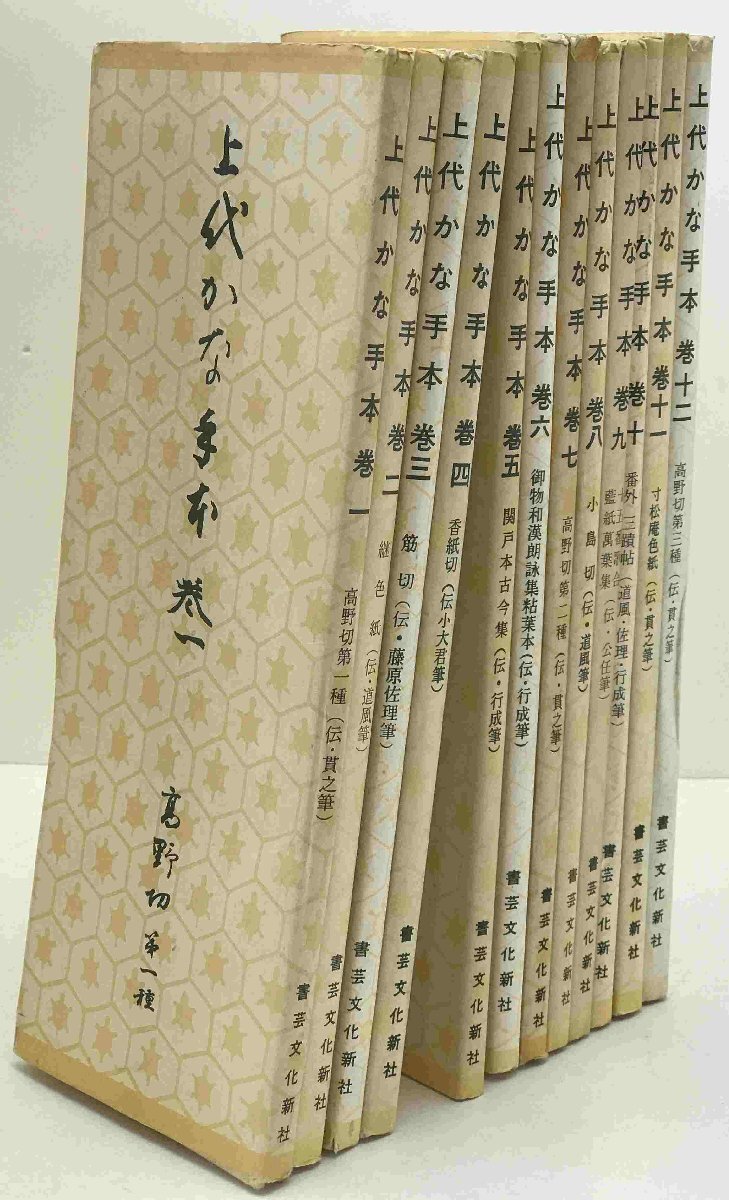 上代かな手本 巻一
高野切 第一種
上代かな手本 巻一 高野切第一種(伝・貫之筆) 書芸文化新社
上代かな手本 巻二 継色紙(伝・道風筆) 書芸文化新社
上代かな手本 巻三 筋切(伝・藤原佐理筆) 書芸文化新社
上代かな手本 巻四 香紙切(伝小大君筆) 書芸文化新社
上代かな手本 巻五 関戸本古今集(伝・行成筆) 書芸文化新社
上代かな手本 巻六 御物和漢朗詠集粘葉本(伝・行成筆) 書芸文化新社
上代かな手本 巻七 高野切第二種(伝・貫之筆) 書芸文化新社
上代かな手本 巻八 小島切(伝・道風筆) 書芸文化新社
上代かな手本 巻九 藍紙萬葉集(伝・公任筆) 書芸文化新社
上代かな手本 巻十 番外 三蹟帖(道風・佐理・行成筆) 書芸文化新社
上代かな手本 巻十一 寸松庵色紙(伝・貫之筆) 書芸文化新社
上代かな手本 巻十二 高野切第三種(伝・貫之筆) 書芸文化新社